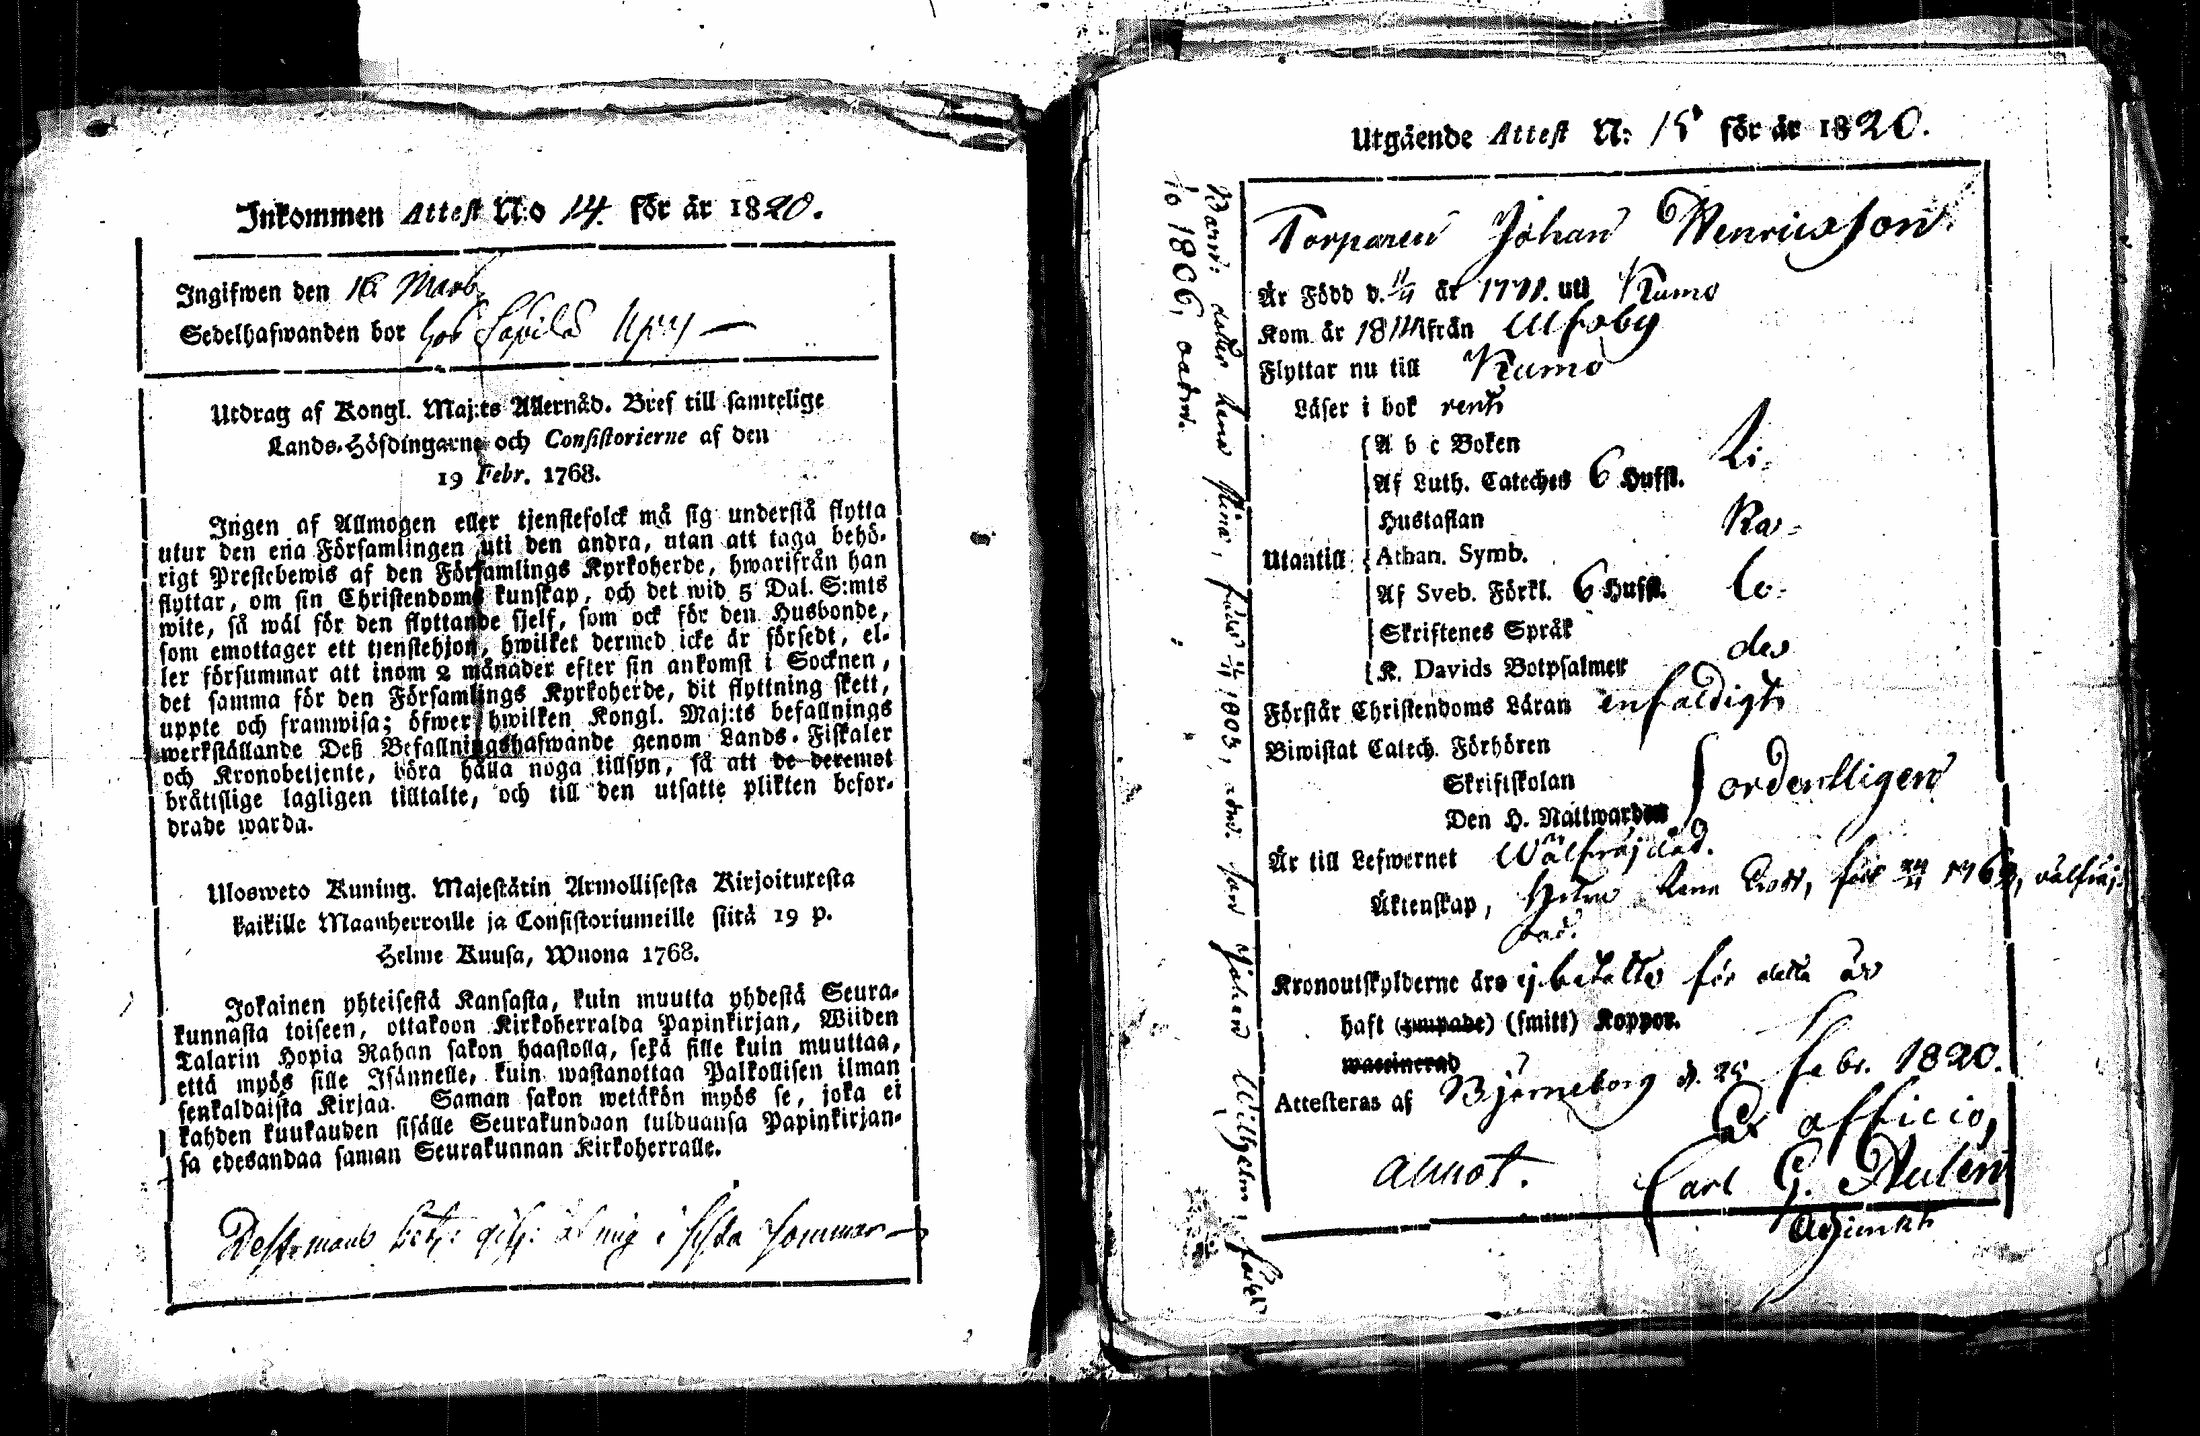 Inkommen Attest N:o 14. för år 1820.
Ingifwen den 16 Mars
Sedelhafwanden bor hos
Utdrag af Kongl. Maj:ts Allernåd. Bref till samtelige
Lands-Höfdingarne och Consistorierne af den
19 Febr. 1768.
Ingen af Allmogen eller tjenstefolck må sig understå flytta
utur den ena Församlingen uti den andra, utan att taga behö-
rigt Prestebewis af den Församlings Kyrkoherde, hwarifrån han
flyttar, om sin Christendoms kunskap, och det wid 5 Dal. S:mts
wite, så wäl för den flyttande sjelf, som ock för den Husbonde,
som emottager ett tjenstehjon, hwilket dermed icke är försedt, el-
ler försummar att inom 2 månader efter sin ankomst i Socknen,
det samma för den Församlings Kyrkoherde, dit flyttning skett,
uppte och framwisa; öfwer hwilken Kongl. Maj:ts befallnings
werkställande Deß Befallningshafwande genom Lands-Fiskaler
och Kronobetjente, böra hålla noga tillsyn, så att de deremot
bråttslige lagligen tilltalte, och till den utsatte plikten befor-
drade warda.
Ulosweto Kuning. Majestätin Armollisesta Kirjoituxesta
kaikille Maanherroille ja Consistoriumeille siitä 19 p.
Helme Kuusa, Wuona 1768.
Jokainen yhteisestä Kansasta, kuin muutta yhdestä Seura-
kunnasta toiseen, ottakoon Kirkoherralda Papinkirjan, Wiiden
Talarin Hopia Rahan sakon haastolla, sekä sille kuin muuttaa,
että myös sille Isännelle, kuin wastanottaa Palkollisen ilman
senkaldaista Kirjaa. Saman sakon wetäkön myös se, joka ei
kahden kuukauden sisälle Seurakundaan tulduansa Papinkirjan-
sa edesandaa saman Seurakunnan Kirkoherralle.
mig i sista sommar
Utgående Attest N: 15 för år 1820.
Torparen Johan Henricsson
Är Född d. år uti Kumo
Kom år 1811 ifrån Ulfsby
Flyttar nu till Kumo
Läser i bok rent
Utantill
A b c Boken
Af Luth. Cateches 6 Hufst.
Hustaflan
Athan. Symb.
Af Sveb. Förkl. 6 Hufst.
Skriftenes Språk
K. Davids Botpsalmer
Li-
Ra-
to-
des
Förstår Christendoms Läran enfaldigt
Biwistat Catech. Förhören
Skriftskolan
Den H. Nattwarden
ordentligen
Är till Lefwernet Wälfräjdad.
Äktenskap,
Kronoutskylderne äro ej betalte för detta år
haft (ympade) (smitt) Koppor.
waccinerad
Attesteras af Björneborg d. 25 Febr. 1820.
Ex officio,
Carl G. Aulen
Adjunkt
Barn: dotter Lena Stina, född 1803, adm. son Johan Wilhelm, född
1806, oadm.